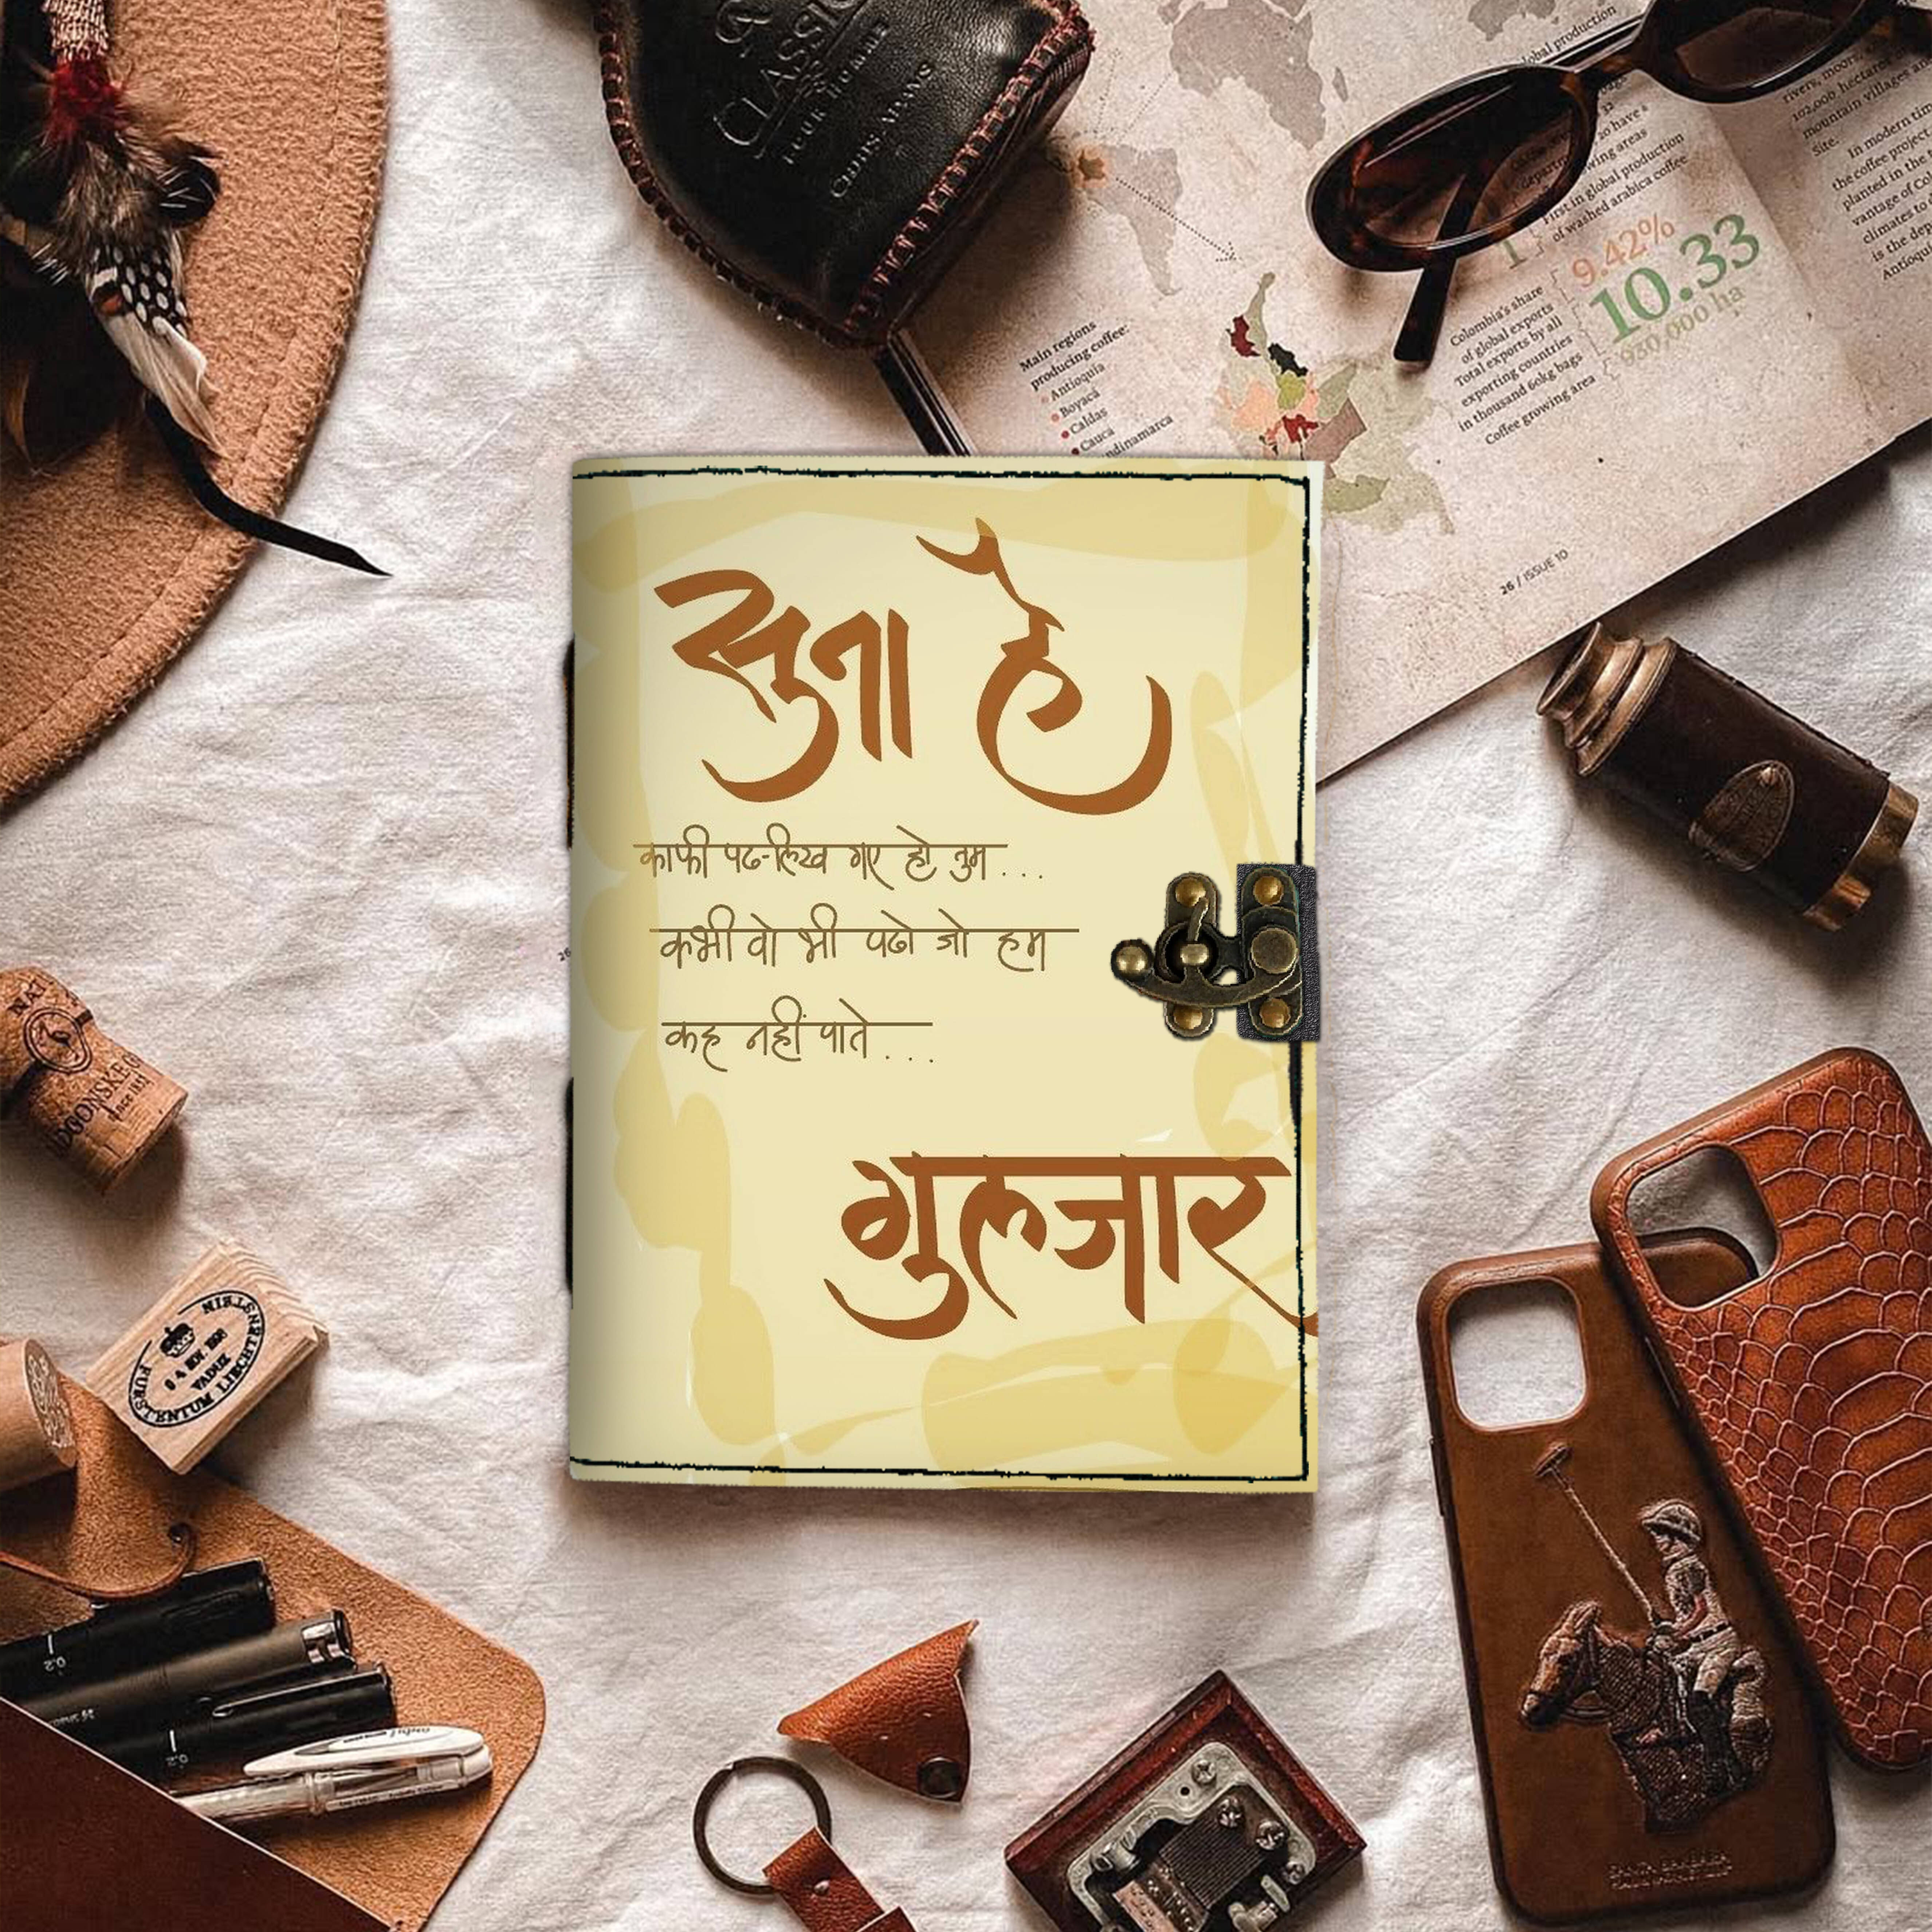 CLASSIC
FOUR NUMBER
CHRIS ADAMS
global production
20 have
First in global production
of washed arabica coffee
1
9.42%
10.33
930,000 ha
Colombia's share
of global exports
Total exports by all
exporting countries
in thousand 60kg bags
Coffee growing area
rivers, moors,
102,000 hectares
mountain villages
Site.
In modern
the coffee project
planted in the
vantage of
climates to
is the
Main regions
producing coffee:
Antioquia
Boyacá
Caldas
Cauca
ndinamarca
26 / ISSUE 10
सुना है
काफी पढ-लिख गए हो तुम...
कभी वो भी पढो जो हम
कह नहीं पाते...
गुलजार
26
FÜRSTENTUM LIECHTENSTEIN
VADUZ
0.2
0.2